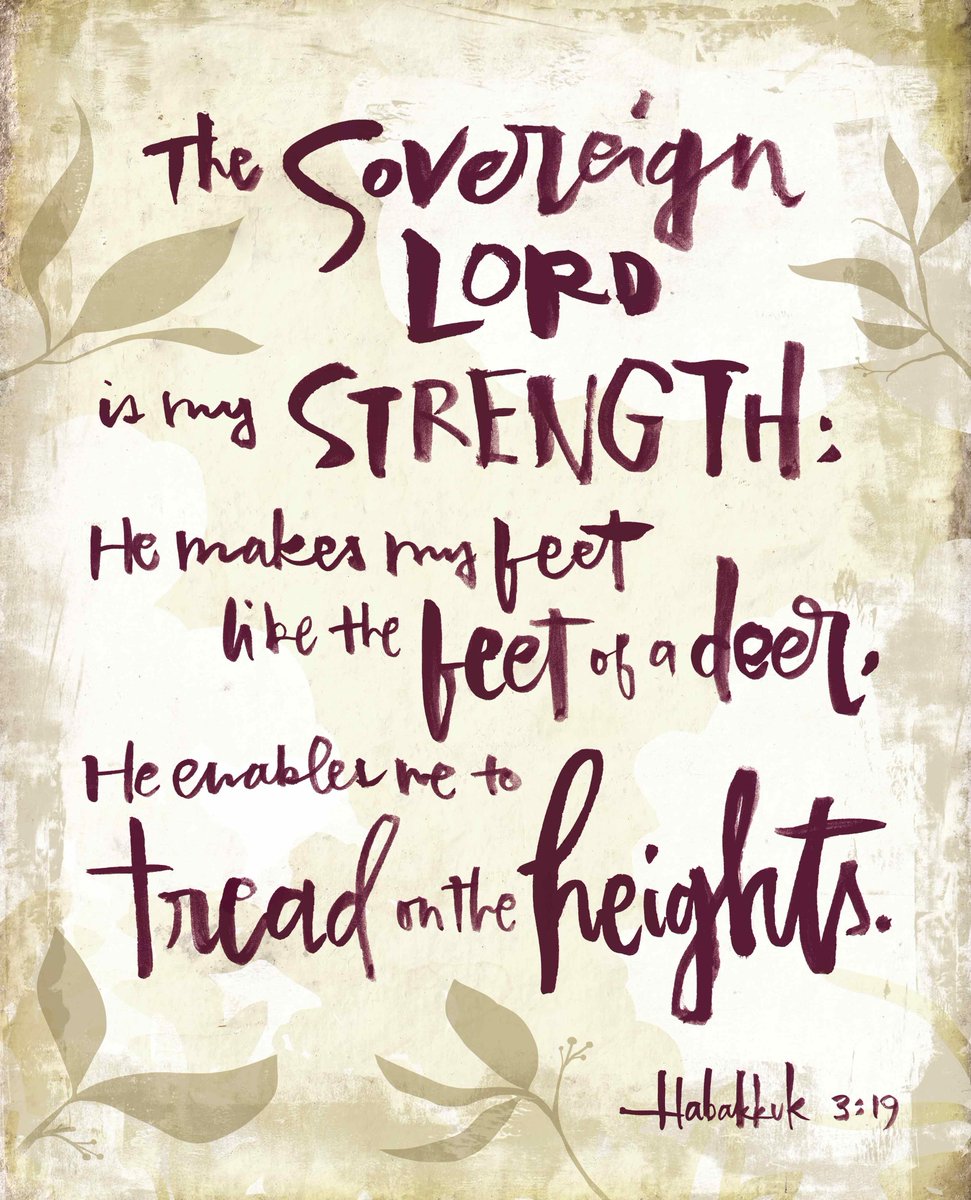 The Sovereign
LORD
is my STRENGTH:
He makes my feet
like the feet of a deer,
He enables me to
tread on the heights.
Habakkuk 3:19